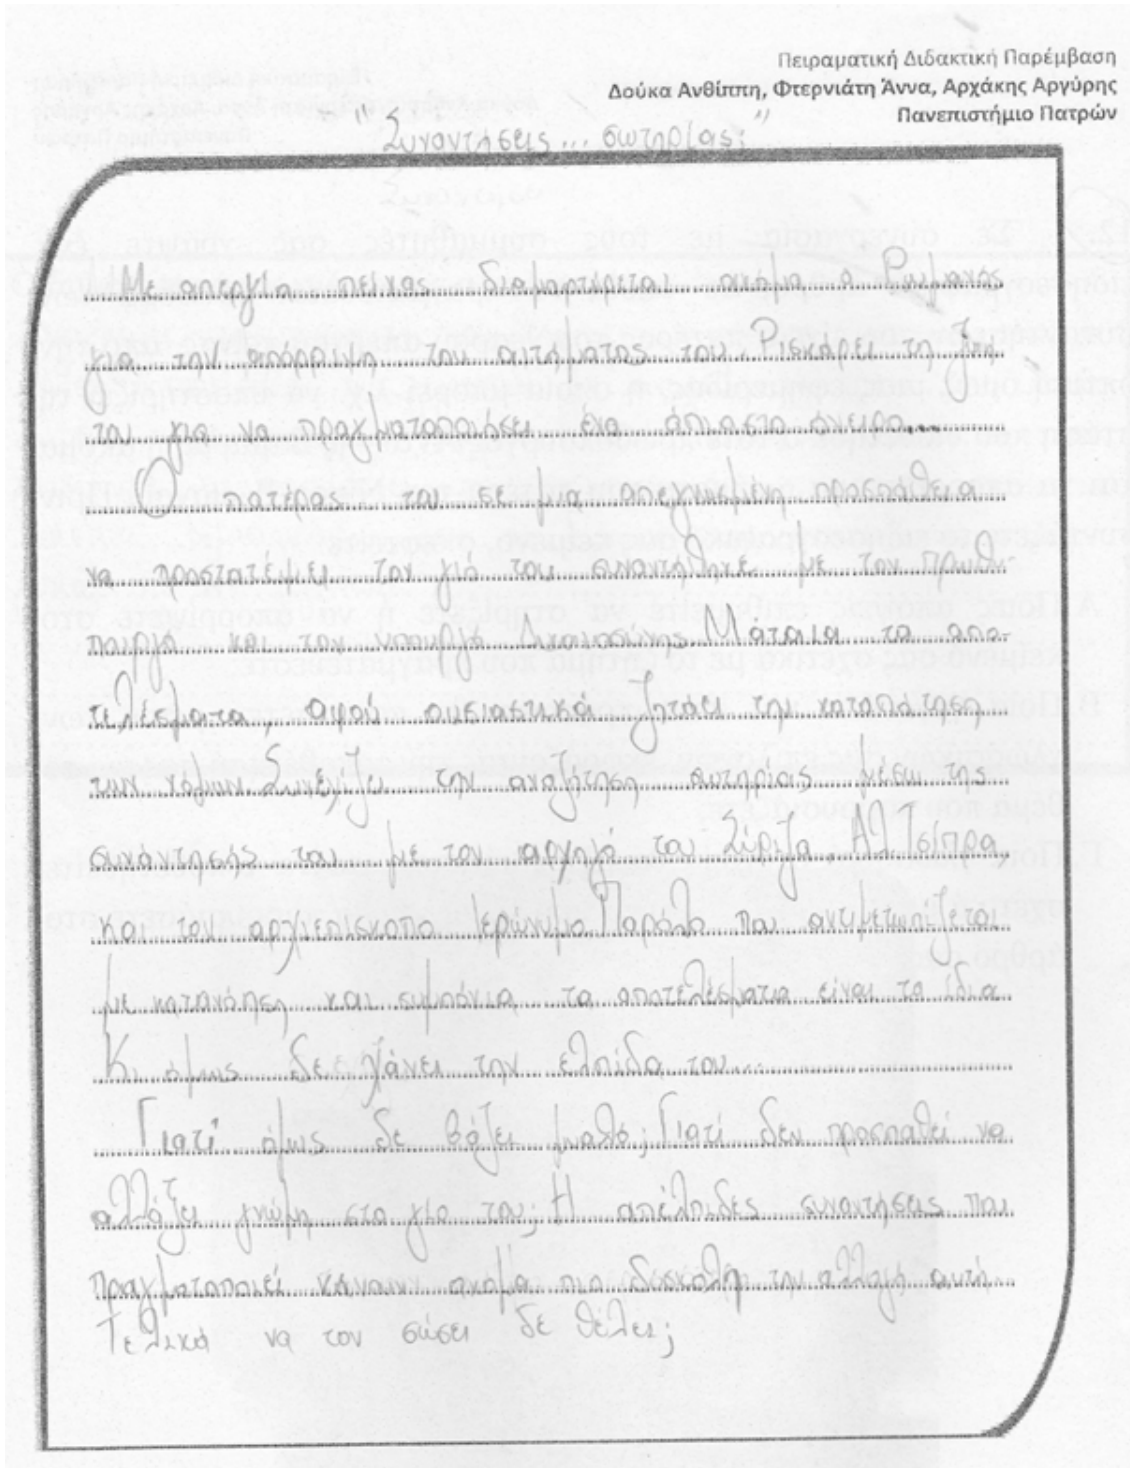 Πειραματική Διδακτική Παρέμβαση
Δούκα Ανθίππη, Φτερνιάτη Άννα, Αρχάκης Αργύρης
Πανεπιστήμιο Πατρών
"Συναντήσεις... σωτηρίας;"
Με απεργία πείνας διαμαρτύρεται ακόμα ο Ρωμανός
για την απόρριψη του αιτήματος του. Ρισκάρει τη ζωή
του για να πραγματοποιήσει ένα άπιαστο όνειρο...
Ο πατέρας του σε μια απεγνωσμένη προσπάθεια
να προστατέψει τον γιό του συναντήθηκε με τον πρωθυ-
πουργό και τον υπουργό Δικαιοσύνης. Μάταια τα απο-
τελέσματα, αφού ουσιαστικά ζητάει την καταπάτηση
των νόμων. Συνεχίζει την αναζήτηση σωτηρίας μέσω της
συνάντησής του με τον αρχηγό του Σύριζα, Αλ. Τσίπρα,
και τον αρχιεπίσκοπο Ιερώνυμο. Παρόλο που αντιμετωπίζεται
με κατανόηση και συμπόνια τα αποτελέσματα είναι τα ίδια
Κι όμως δε χάνει την ελπίδα του...
Γιατί όμως δε βάζει μυαλό; Γιατί δεν προσπαθεί να
αλλάξει γνώμη στο γιο του; Η απέλπιδες συναντήσεις που
πραγματοποιεί κάνουν ακόμα πιο δύσκολη την αλλαγή αυτή.
Τελικά να τον σώσει δε θέλει;